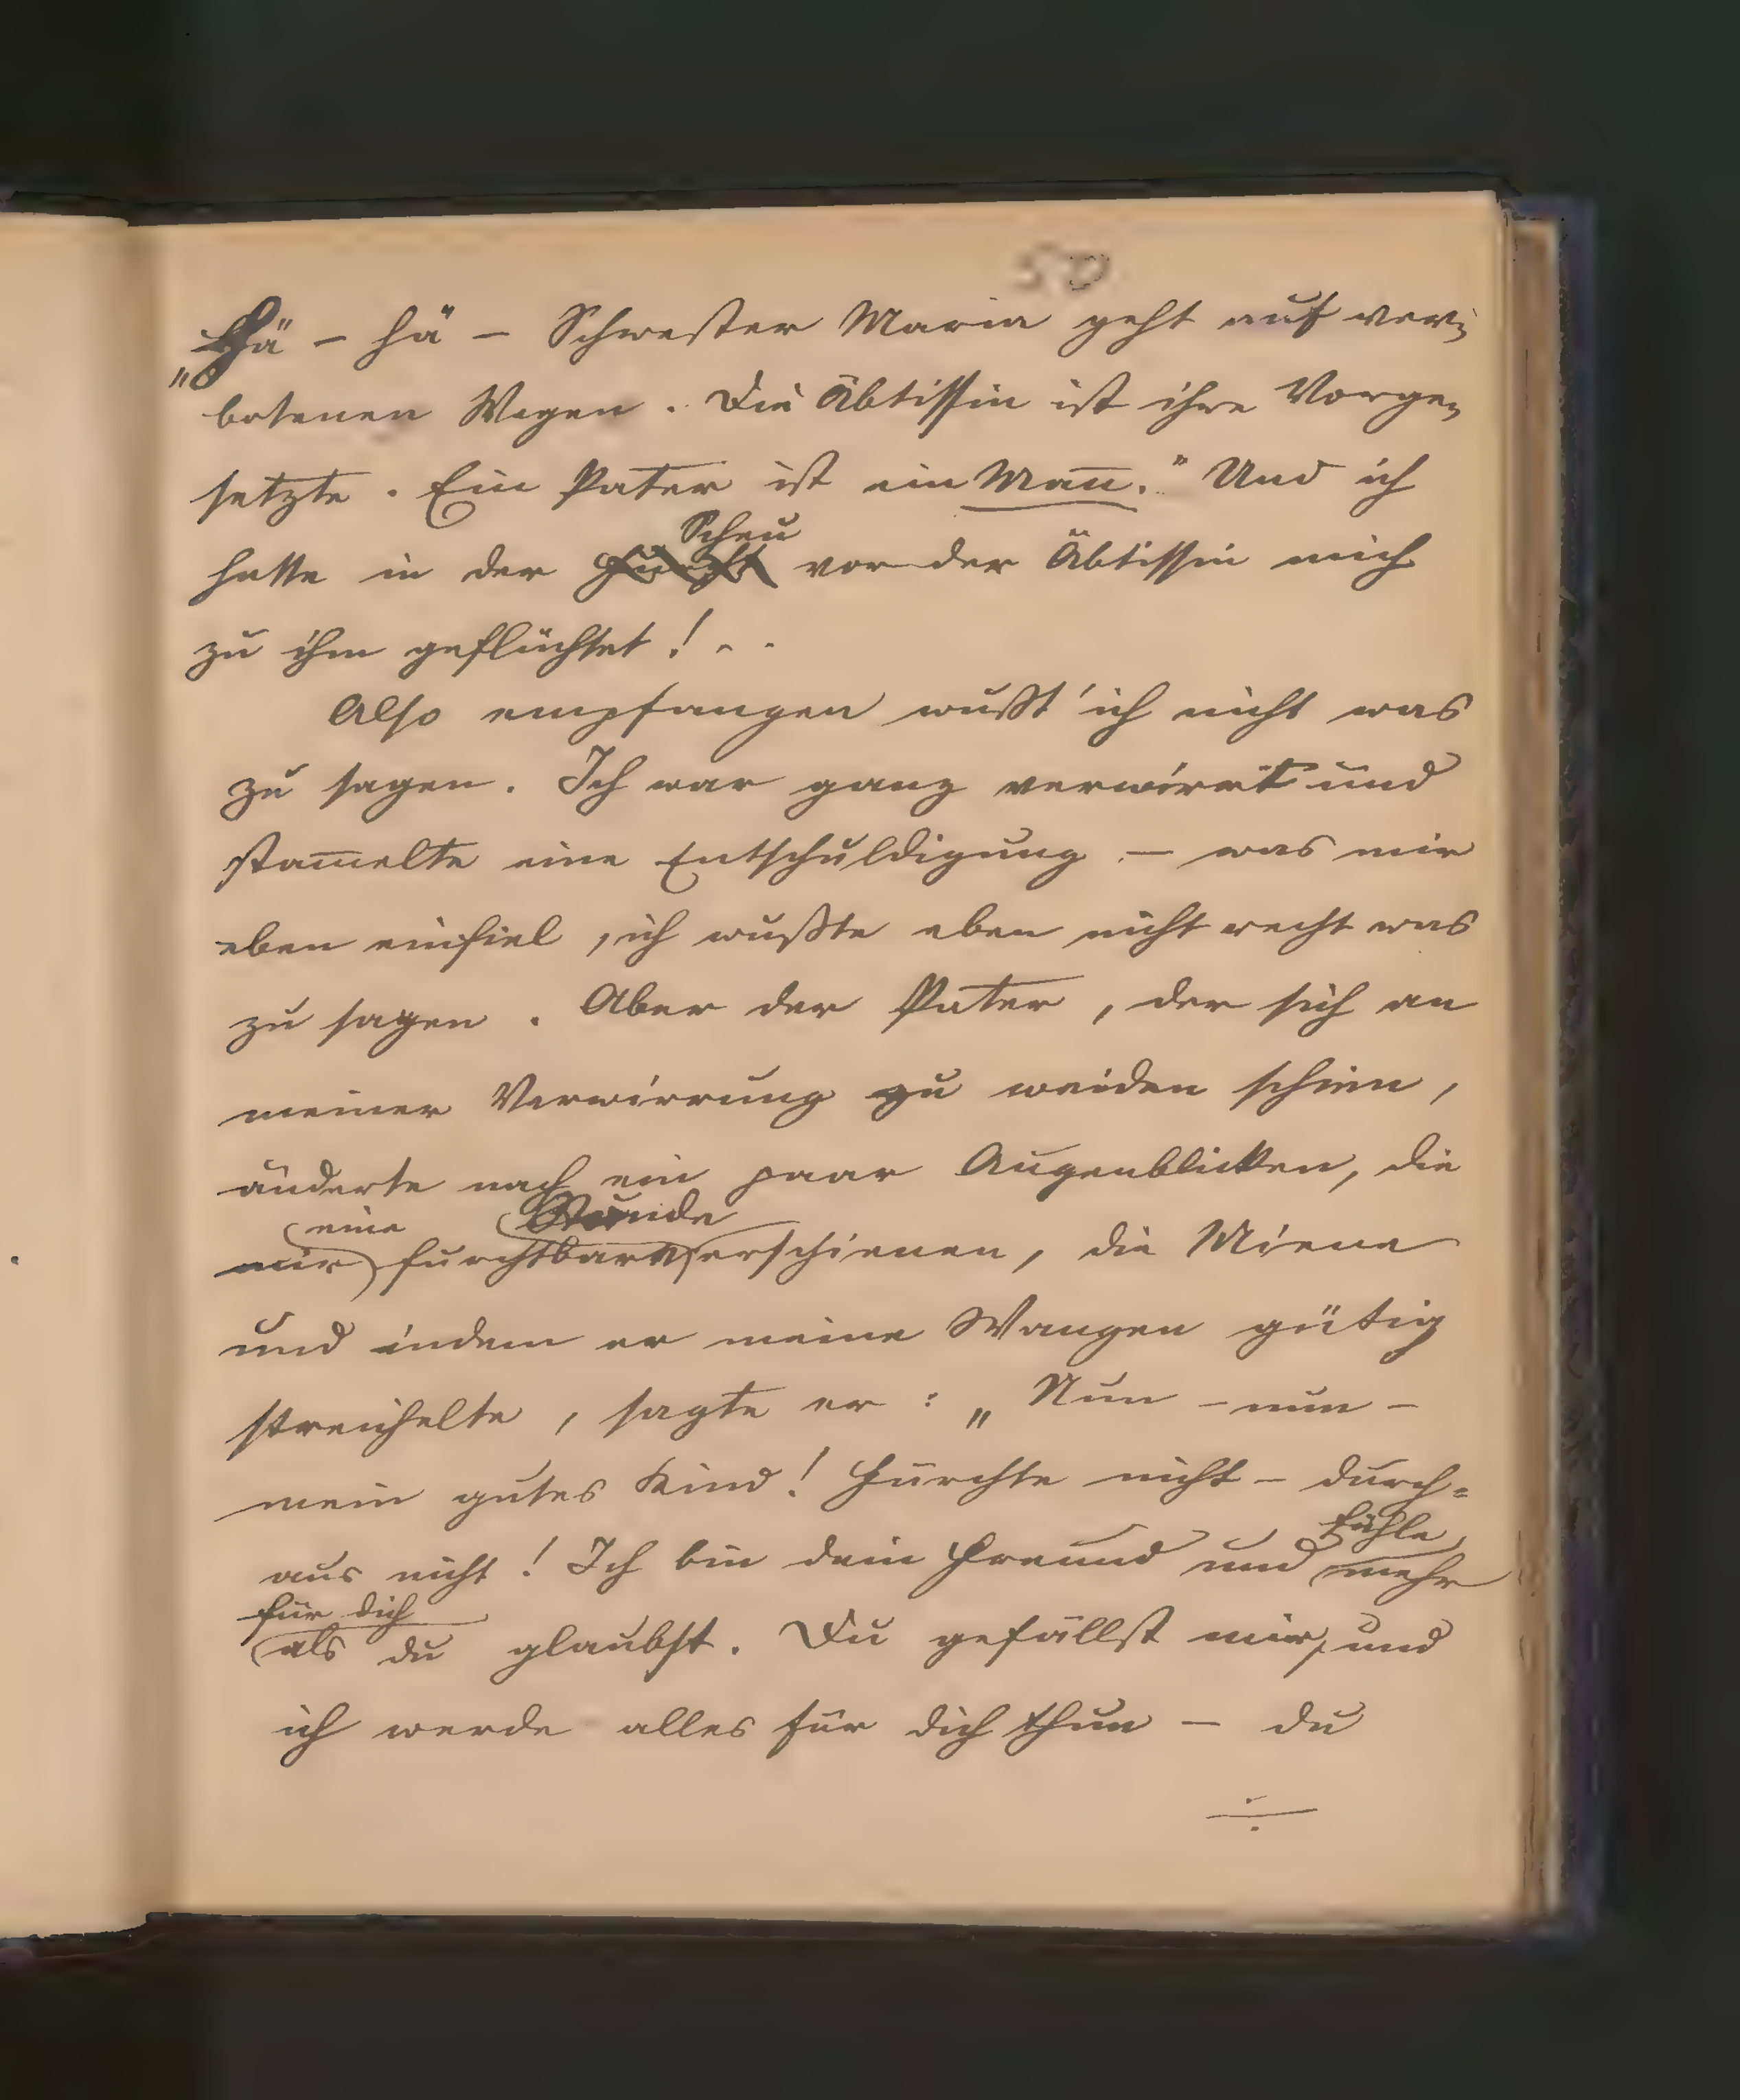 50
„Hä – hä – Schwester Maria geht auf ver-
botenen Wegen. Die Äbtissin ist ihre Vorge-
setzte. Ein Pater ist ein Mañ." Und ich
Scheu
hatte in der Furcht vor der Äbtissin mich
zu ihm geflüchtet! . .
Also empfangen wußt' ich nicht was
zu sagen. Ich war ganz verwirrt und
stam̄elte eine Entschuldigung – was mir
eben einfiel, ich wußte eben nicht recht was
zu sagen. Aber der Pater, der sich an
meiner Verwirrung zu weiden schien,
änderte nach ein paar Augenblicken, die
eine Stunde
mir furchtbare erschienen, die Miene
und indem er meine Wangen gütig
streichelte, sagte er: „Nun – nun –
mein gutes Kind! Fürchte nicht – durch-
fühle
aus nicht! Ich bin dein Freund und mehr
für dich
als du glaubst. Du gefällst mir, und
ich werde alles für dich thun – du